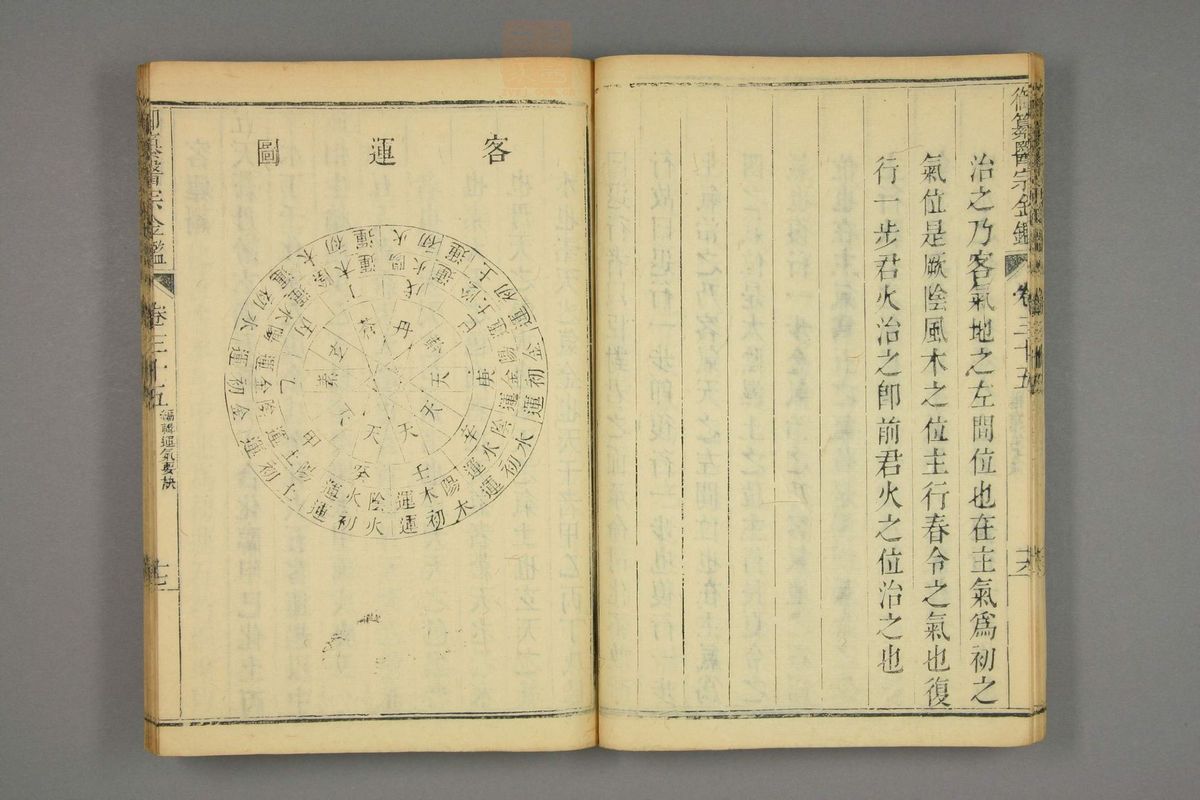 御纂醫宗金鑑 卷三十五 十六
治之乃客氣地之左間位也在主氣爲初之
氣位是厥陰風木之位主行春令之氣也復
行一步君火治之卽前君火之位治之也
客運圖
火初運
土初運
金初運
水初運
木初運
火初運
土初運
金初運
水初運
木初運
陽火運
陰土運
陽金運
陰水運
陽木運
陰火運
陽土運
陰金運
陽水運
陰木運
戊
己
庚
辛
壬
癸
甲
乙
丙
丁
天
天
天
天
御纂醫宗金鑑 卷三十五 編輯運氣要訣 十七